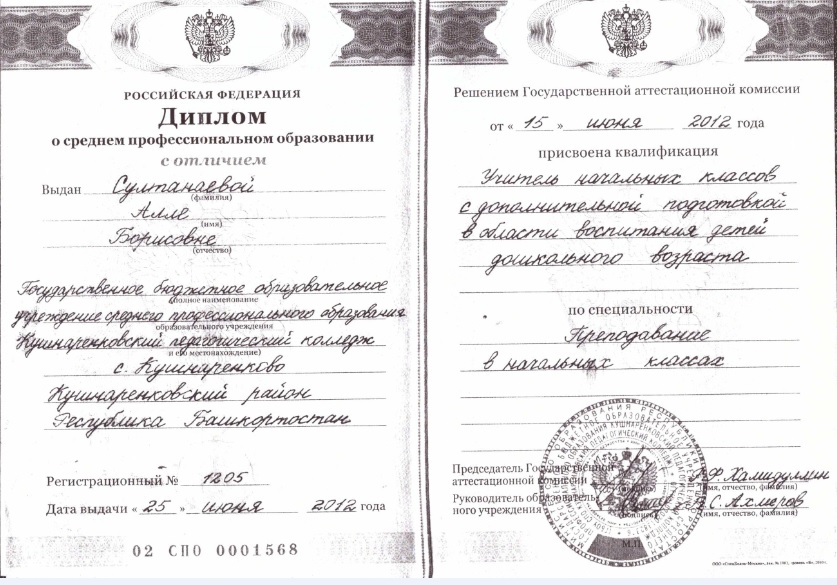 РОССИЙСКАЯ ФЕДЕРАЦИЯ
Диплом
о среднем профессиональном образовании
с отличием
Выдан Султанаевой
(фамилия)
Алле
(имя)
Борисовне
(отчество)
Государственное бюджетное образовательное
(полное наименование
учреждение среднего профессионального образования
образовательного учреждения
Кушнаренковский педагогический колледж
и его местонахождение)
с. Кушнаренково
Кушнаренковский район
Республика Башкортостан
Регистрационный № 1205
Дата выдачи « 25 » июня 2012 года
02 СПО 0001568
Решением Государственной аттестационной комиссии
от « 15 » июня 2012 года
присвоена квалификация
Учитель начальных классов
с дополнительной подготовкой
в области воспитания детей
дошкольного возраста
по специальности
Преподавание
в начальных классах
Председатель Государственной
аттестационной комиссии Р.Ф. Хамидуллин
(подпись) (имя, отчество, фамилия)
Руководитель образователь-
ного учреждения С. Ахмеров
(подпись) (имя, отчество, фамилия)
М.П.